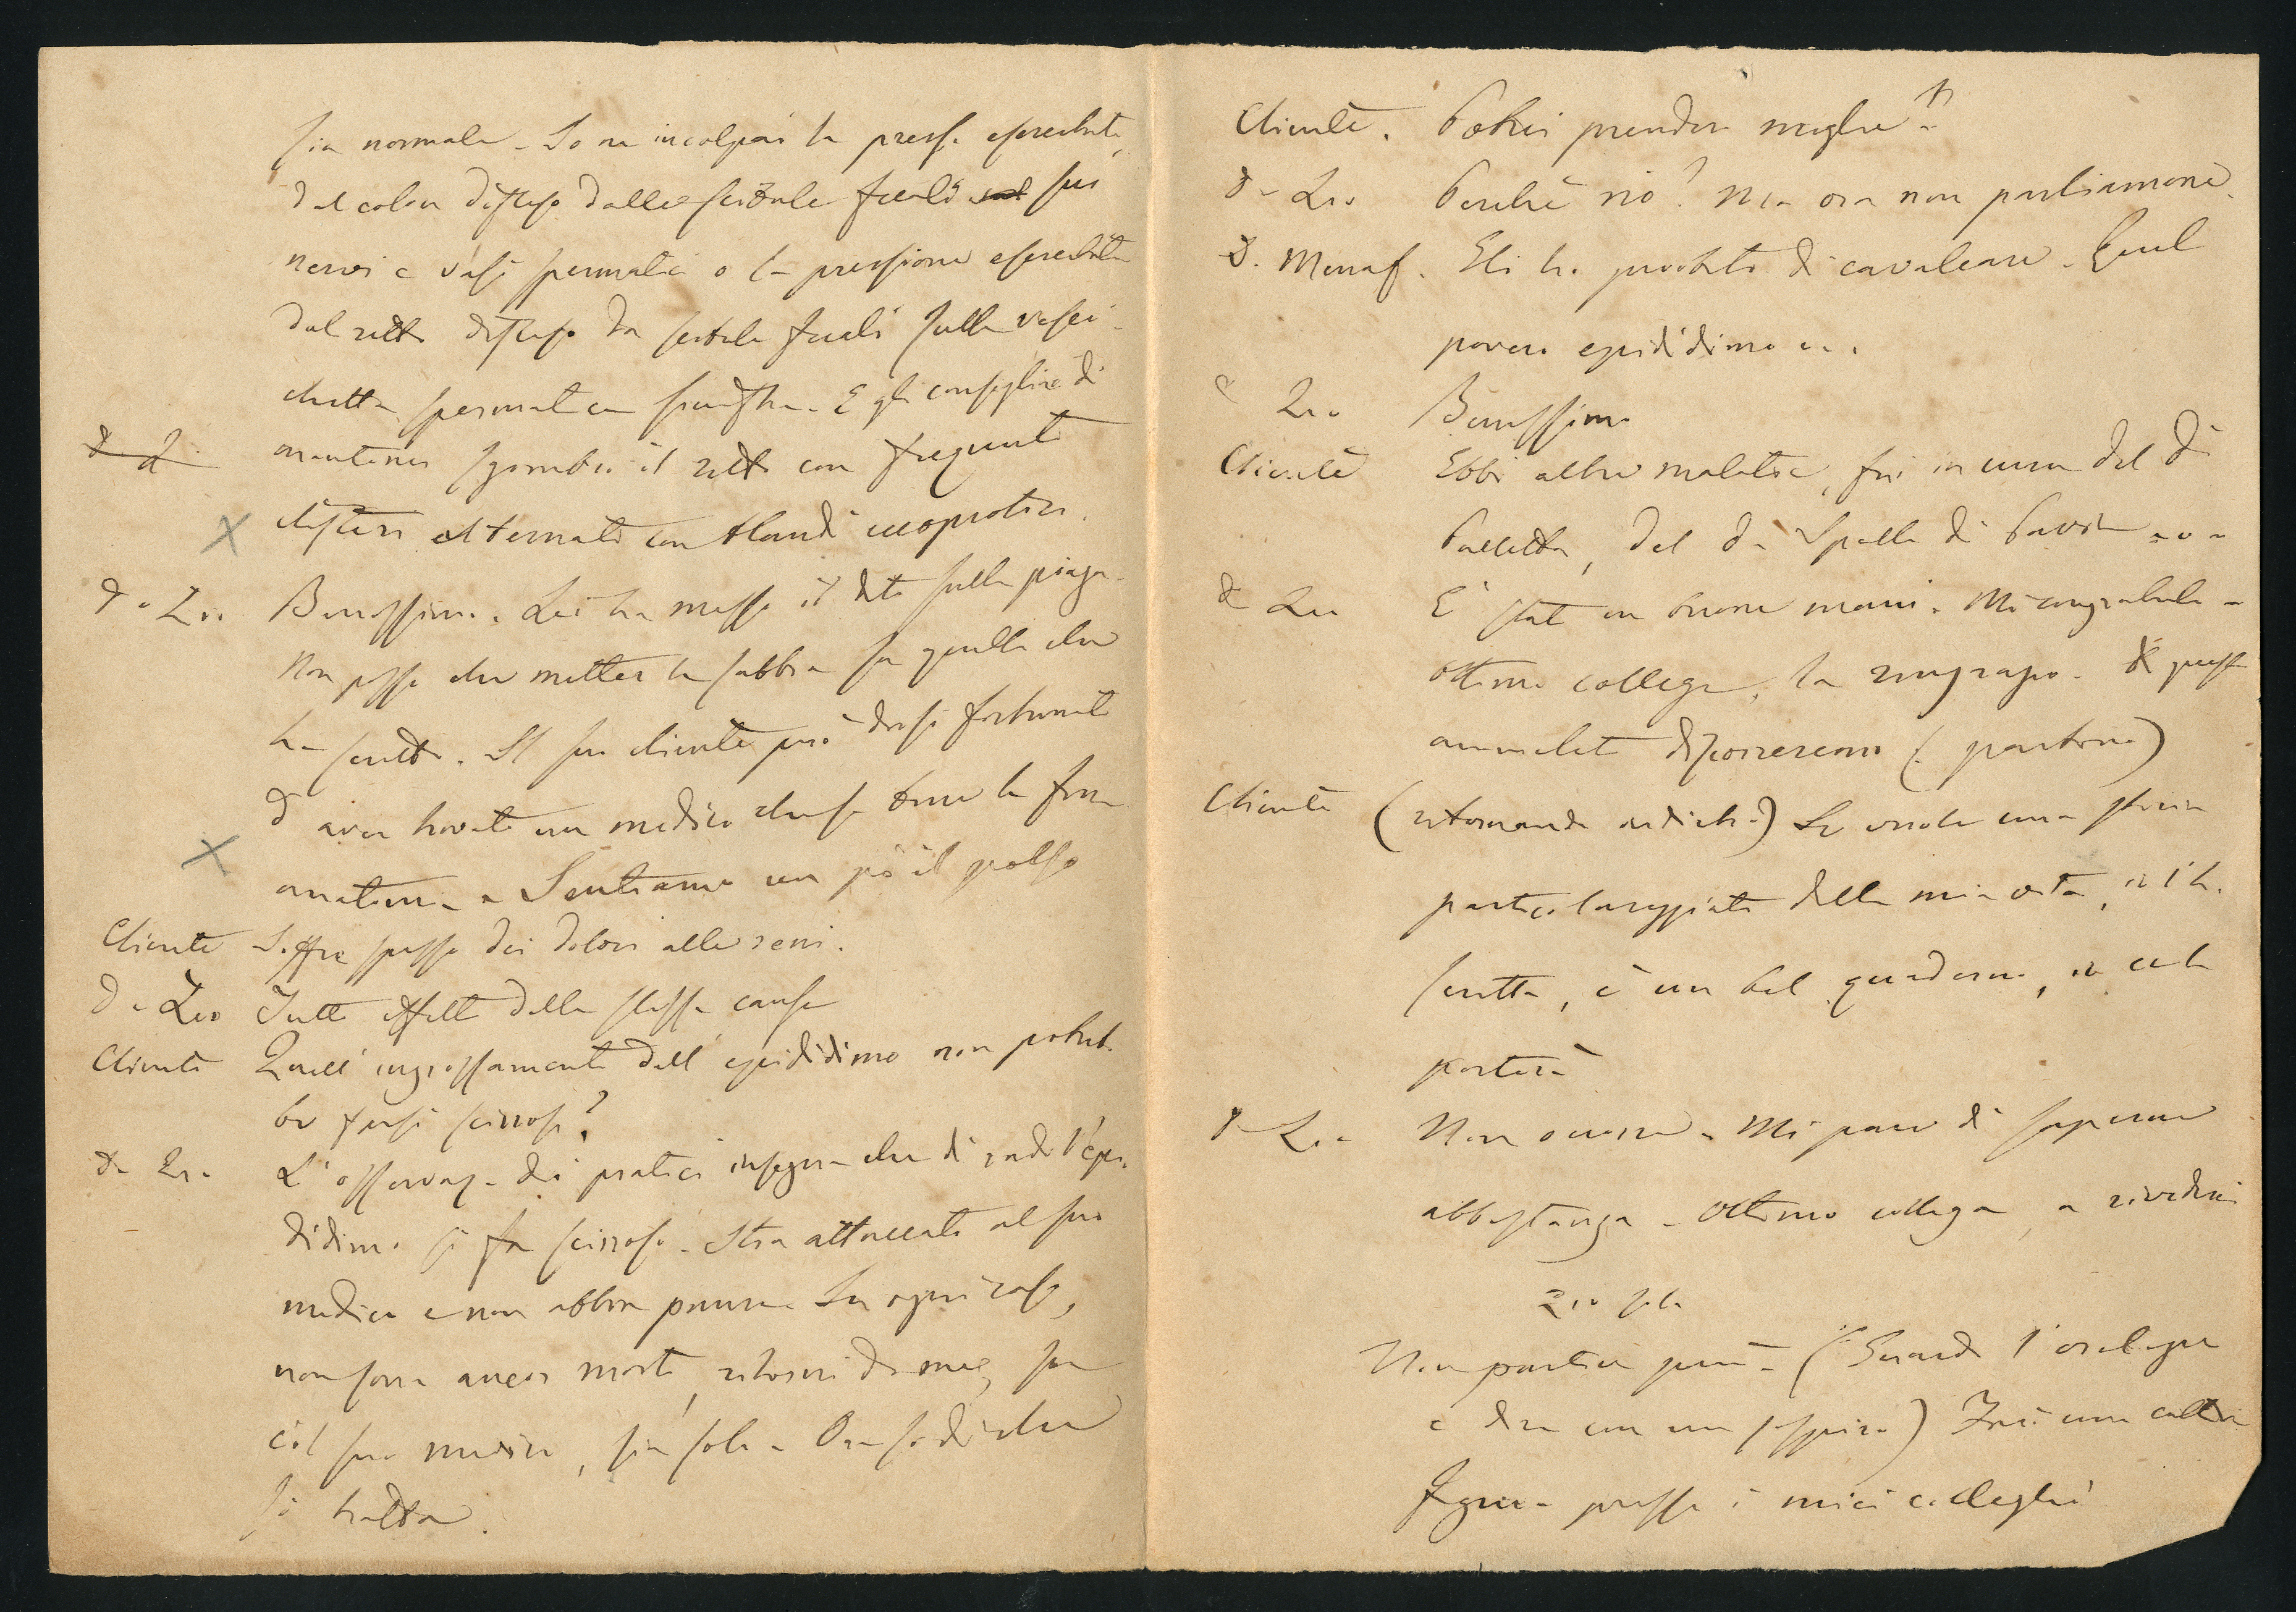 sia normale. Io ne incolpai la press. esercitata
dal colon disteso dalle scibale fecali sui
nervi e vasi spermatici o la pressione esercitata
dal retto disteso da scibale fecali sulla vesci-
chetta spermatica sinistra. E gli consigliai di
mantener sgombro il retto con frequenti
clisteri alternati con blandi eccoprotici.
D. Zio Benissimo. Lei ha messo il dito sulla piaga.
Non posso che metter la sabbia su quello che
ha scritto. Il suo cliente può dirsi fortunato
d'aver trovato un medico che sa bene la sua
anatomia. Sentiamo un po' il polso
Cliente Soffro spesso dei dolori alle reni.
D. Zio Tutti effetti della stessa causa
Cliente Quell'ingrossamento dell'epididimo non potreb-
be farsi scirroso?
D. Zio L'osservaz. dei pratici insegna che di rado l'epi-
didimo si fa scirroso. Stia attaccato al suo
medico e non abbia paura. In ogni caso,
non sono ancor morto, ritorni da me, sia
col suo medico, sia solo. Ora so di che
si tratta.
Cliente. Potrei prender moglie?
D. Zio Perchè no? Ma ora non parliamone.
D. Menaf. Ei ha provato di cavalcare. Quel
povero epididimo...
D. Zio Benissimo
Cliente Ebbi altre malattie, fui in cura del Dr
Porletta, del Dr Spalla di Pavia...
D. Zio È stato in buone mani. Mi congratulo.
Ottimo collega, la ringrazio. Di questo
ammalato discorreremo (partono)
Cliente (ritornando indietro) Se vuole una storia
particolareggiata della mia vita, io l'ho
scritta, è un bel quaderno, io ce la
porterò
D. Zio Non occorre. Mi pare di saperne
abbastanza. Ottimo collega, a rivederci
Zio solo
Non parlan più. (Guarda l'orologio
e dice con un sospiro) Farò una cattiva
figura presso i miei colleghi